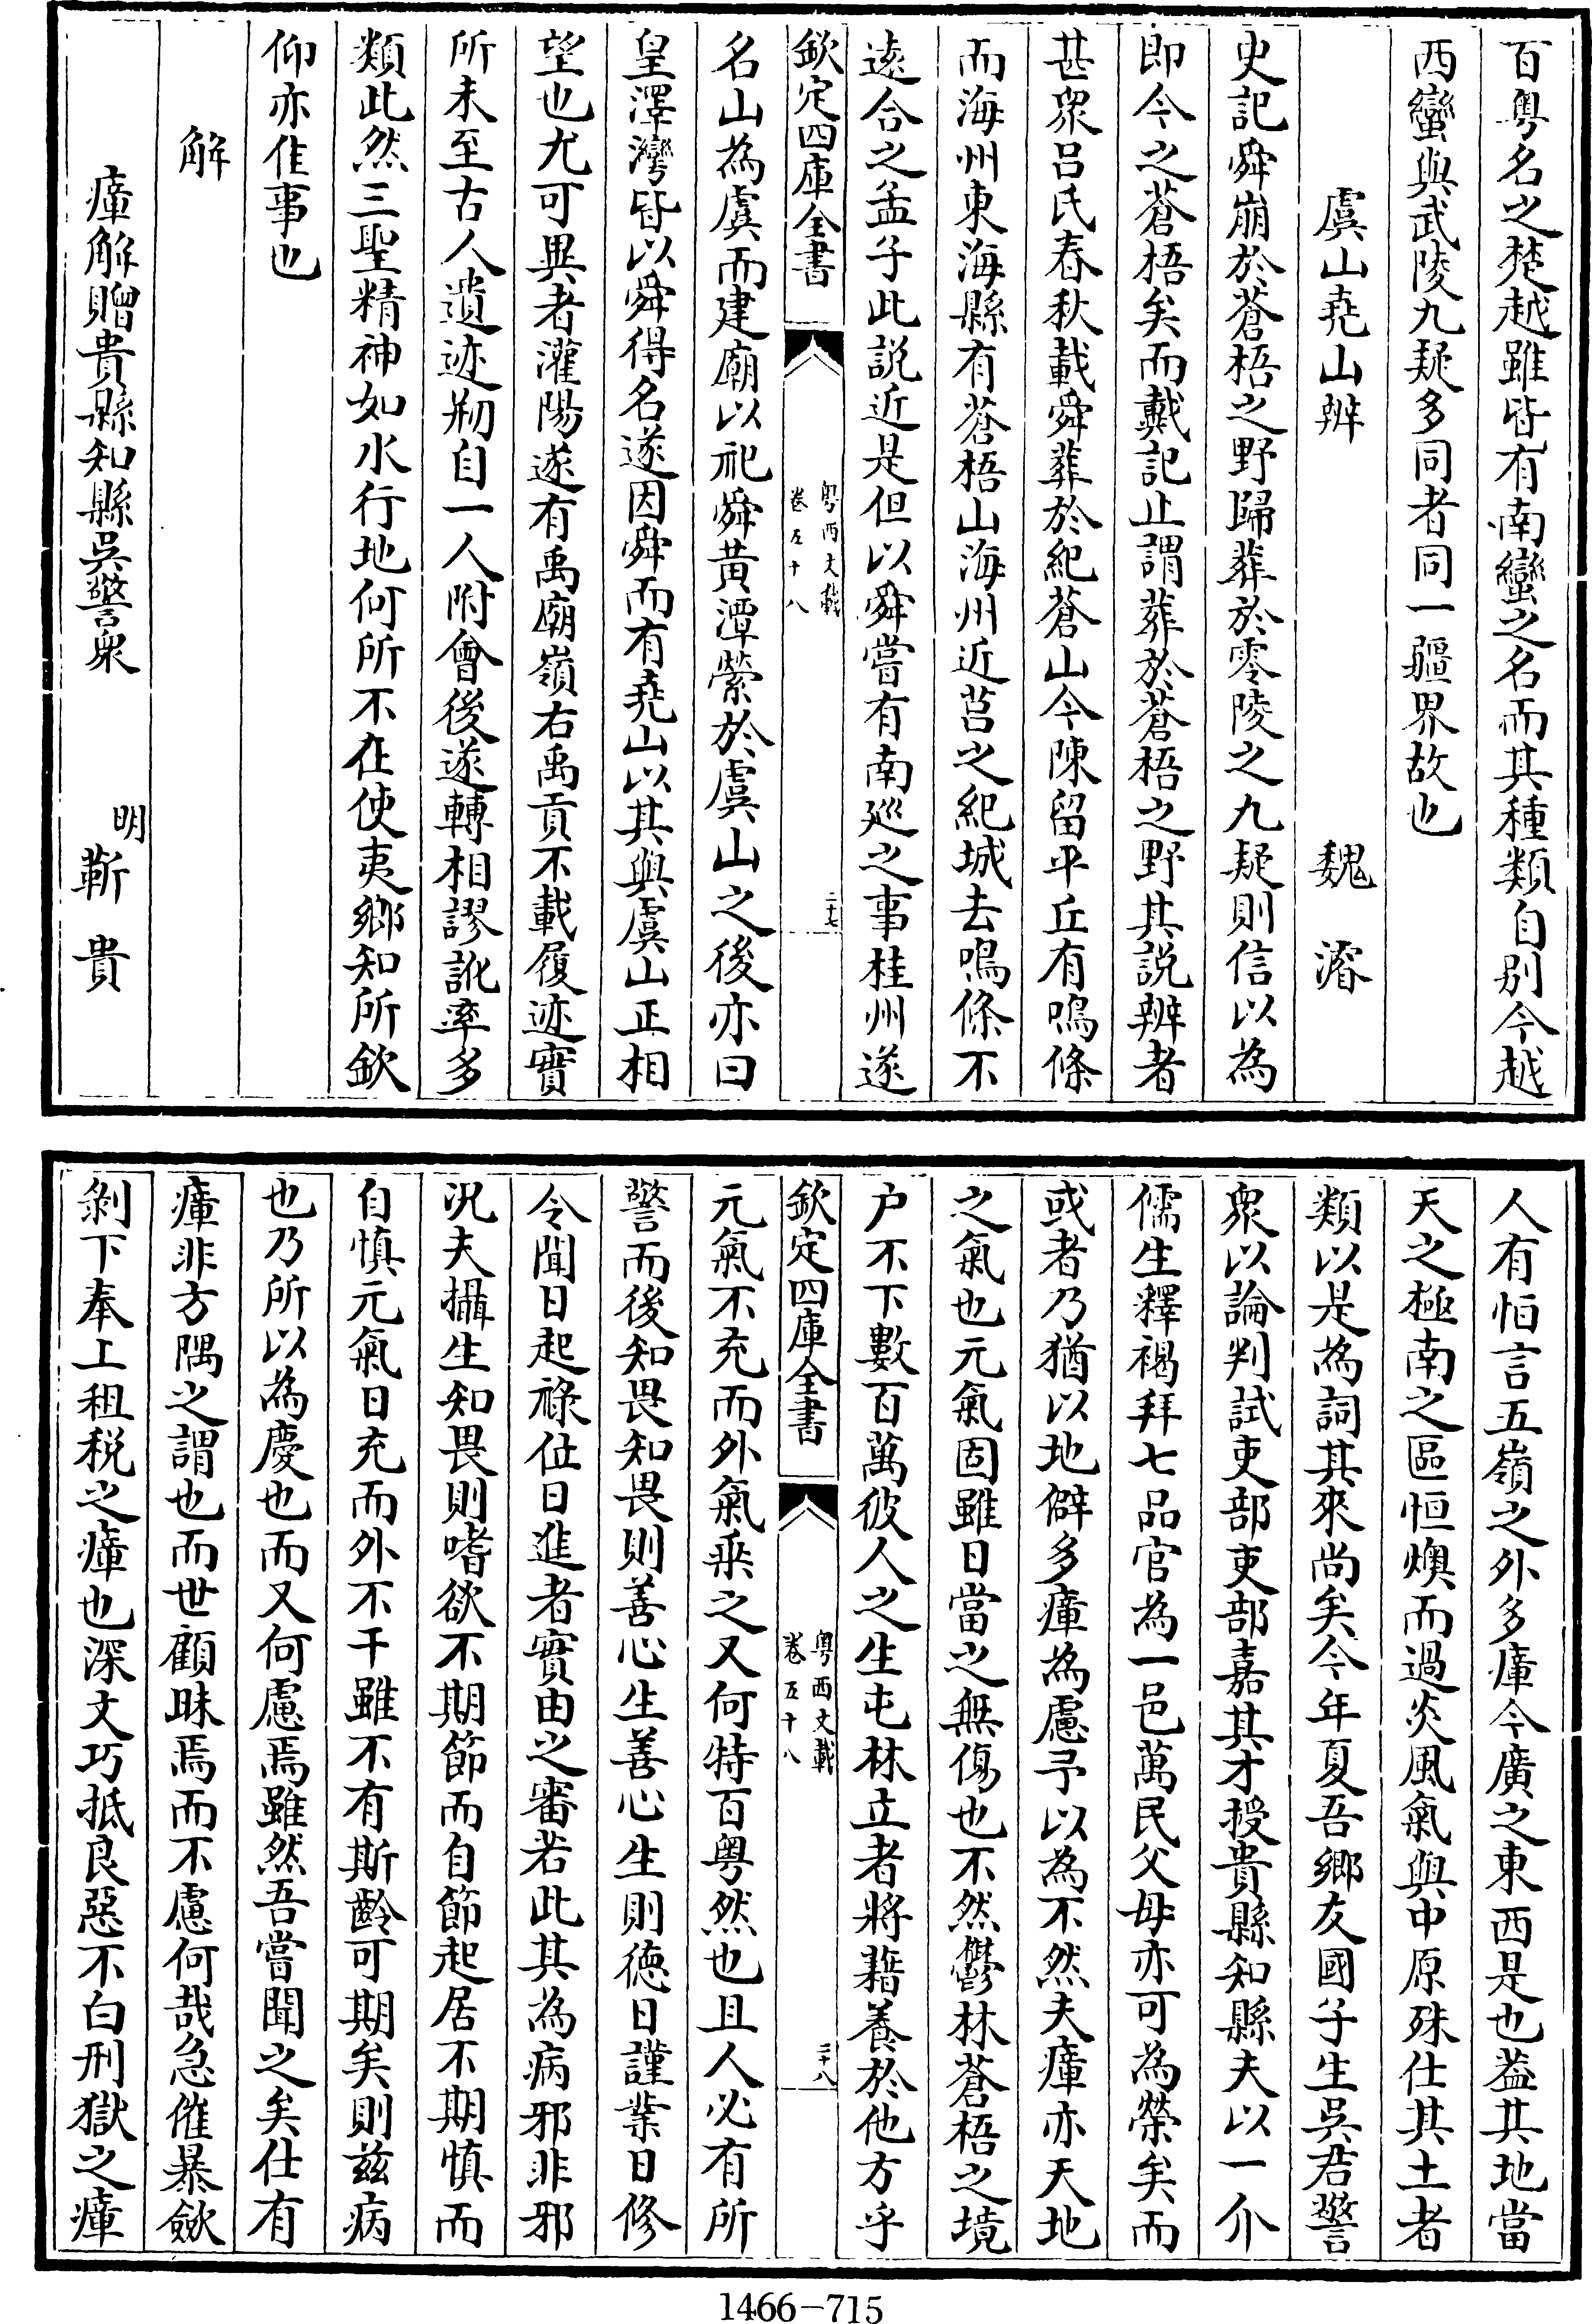 百粤名之楚越雖皆有南蠻之名而其種類自别今越
西蠻與武陵九疑多同者同一疆界故也
虞山堯山辨　魏濬
史記舜崩於蒼梧之野歸葬於零陵之九疑則信以為
即今之蒼梧矣而戴記止謂葬於蒼梧之野其説辨者
甚衆吕氏春秋載舜葬於紀蒼山今陳留平丘有鳴條
而海州東海縣有蒼梧山海州近莒之紀城去鳴條不
逺合之孟子此説近是但以舜嘗有南廵之事桂州遂
欽定四庫全書
粤西文載
卷五十八
二十七
名山為虞而建廟以祀舜黄潭縈於虞山之後亦曰
皇澤灣皆以舜得名遂因舜而有堯山以其與虞山正相
望也尤可異者灌陽遂有禹廟嶺右禹貢不載履迹實
所未至古人遺迹剏自一人附會後遂轉相謬訛率多
類此然三聖精神如水行地何所不在使夷鄉知所欽
仰亦佳事也
解
瘴解贈貴縣知縣吳警衆　明靳貴
人有怕言五嶺之外多瘴今廣之東西是也葢其地當
天之極南之區恒燠而過炎風氣與中原殊仕其土者
類以是為詞其來尚矣今年夏吾鄉友國子生吳君警
衆以論判試吏部吏部嘉其才授貴縣知縣夫以一介
儒生釋褐拜七品官為一邑萬民父母亦可為榮矣而
或者乃猶以地僻多瘴為慮予以為不然夫瘴亦天地
之氣也元氣固雖日當之無傷也不然鬱林蒼梧之境
户不下數百萬彼人之生屯林立者將藉養於他方乎
欽定四庫全書
粤西文載
卷五十八
二十八
元氣不充而外氣乘之又何特百粤然也且人必有所
警而後知畏知畏則善心生善心生則徳日謹業日修
令聞日起祿位日進者實由之審若此其為病邪非邪
况夫攝生知畏則嗜欲不期節而自節起居不期慎而
自慎元氣日充而外不干雖不有斯齡可期矣則兹病
也乃所以為慶也而又何慮焉雖然吾嘗聞之矣仕有
瘴非方隅之謂也而世顧昧焉而不慮何哉急催暴斂
剝下奉上租税之瘴也深文巧抵良惡不白刑獄之瘴
1466—715